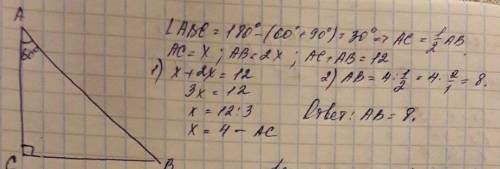 A
60°
C
B
∠ABC = 180° - (60° + 90°) = 30° ⇒ AC = 1/2 AB
AC = x ; AB = 2x ; AC + AB = 12
1) x + 2x = 12
3x = 12
x = 12 : 3
x = 4 - AC
2) AB = 4 : 1/2 = 4 · 2/1 = 8.
Ответ: AB = 8.